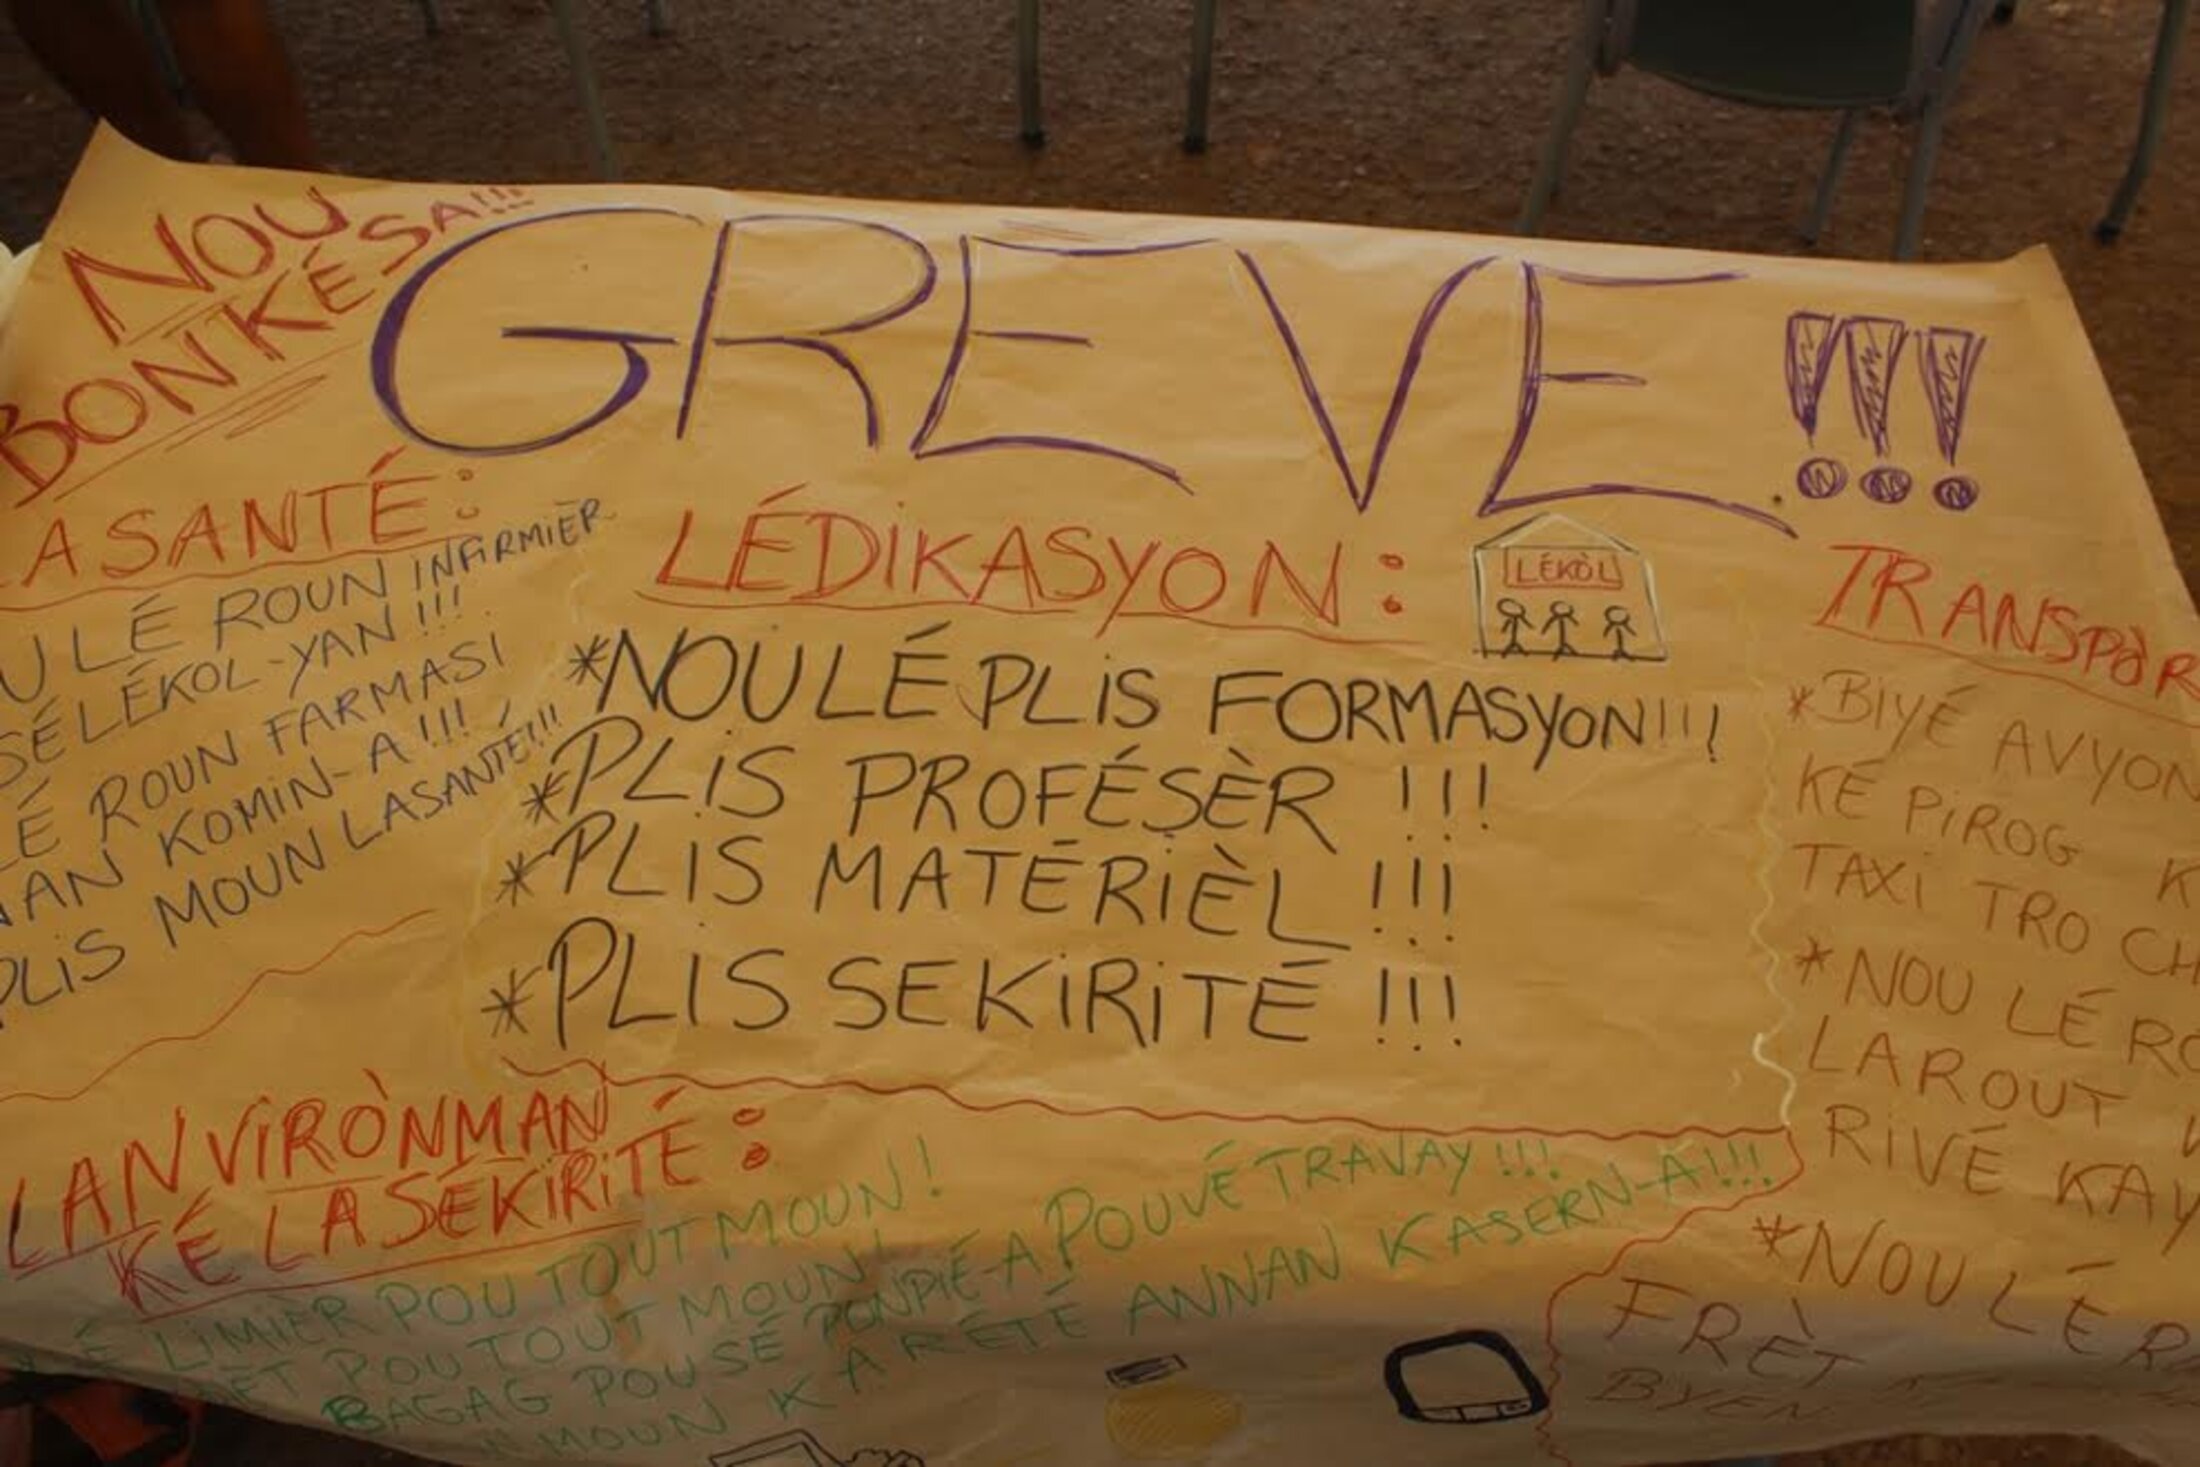 NOU
BONKÉSA!!!
GREVE!!!
LASANTÉ:
LÉ ROUN INFIRMIER
SÉ LÉKOL-YAN!!!
LÉ ROUN FARMASI
KOMIN-A!!!
PLIS MOUN LASANTÉ!!!
LÉDIKASYON:
LÉKÒL
*NOU LÉ PLIS FORMASYON!!!
*PLIS PROFÉSÈR!!!
*PLIS MATÉRIÈL!!!
*PLIS SEKIRITÉ!!!
TRANSPÒR
*BIYÉ AVYON
KÉ PIROG K
TAXI TRO CH
*NOU LÉ RO
LAROUT
RIVÉ KAY
*NOU LÉ R
FRÈT
BYEN
LANVIRÒNMAN
KÉ LASÉKIRITÉ:
LIMIER POU TOUT MOUN!
POU TOUT MOUN!
BAGAG POU SÉ PONPIÉ-A POUVÉ TRAVAY!!!
MOUN KA RÉTÉ ANNAN KASERN-A!!!